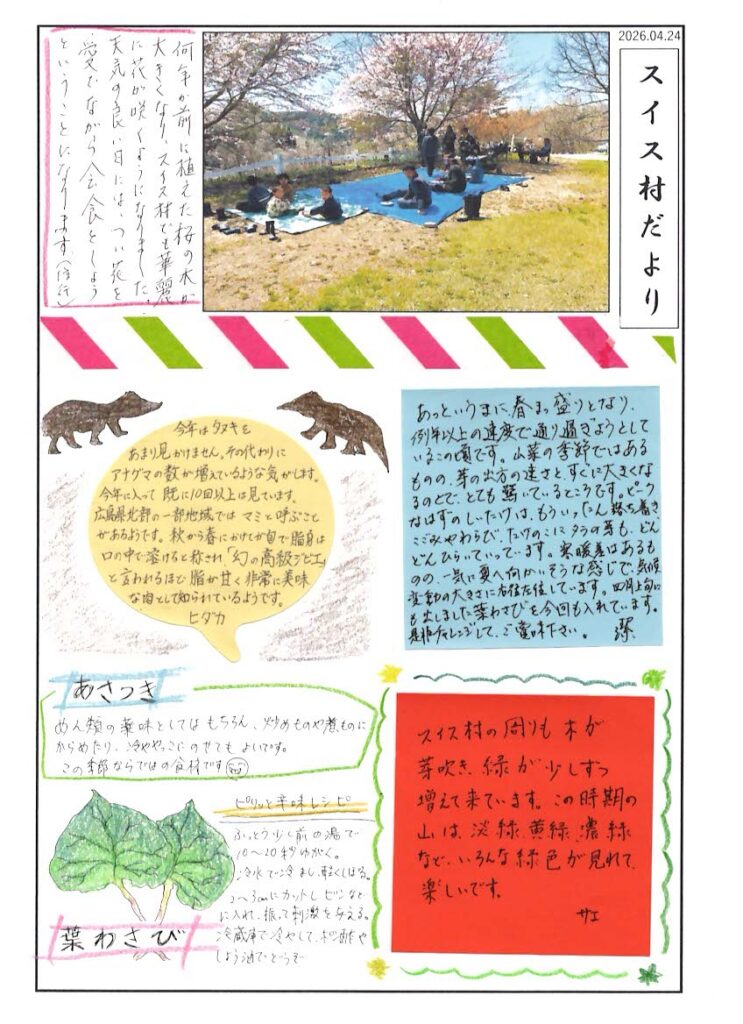 2026.04.24
スイス村だより
何年か前に植えた桜の木が
大きくなり、スイス村でも華麗
に花が咲くようになりました。
天気の良い日には、つい花を
愛でながら会食をしよう
ということになります。(信行)
今年はタヌキを
あまり見かけません。その代わりに
アナグマの数が増えているような気がします。
今年に入って既に10回以上は見ています。
広島県北部の一部地域ではマミと呼ぶこと
があるようです。秋から春にかけてが旬で脂身は
口の中で溶けると称され、「幻の高級ジビエ」
と言われるほど脂が甘く非常に美味
な肉として知られているようです。
ヒダカ
あっというまに、春まっ盛りとなり、
例年以上の速度で通り過ぎようとして
いるこの頃です。山菜の季節ではある
ものの、芽の出方の速さと、すぐに大きくな
るのとで、とても驚いているところです。ピーク
なはずのしいたけは、もういったん落ち着き
こごみやわらび、たけのこにタラの芽も、どん
どんひらいていっています。寒暖差はあるも
のの、一気に夏へ向かいそうな感じで、気候
変動の大きさに右往左往しています。四月上旬に
も出しました葉わさびを今回も入れています。
是非チャレンジして、ご賞味下さい。 潔
あさつき
めん類の薬味としてはもちろん、炒めものや煮ものに
からめたり、冷ややっこにのせてもよいです。
この季節ならではの食材です
ピリッと辛味レシピ
ふっとう少し前の湯で
10〜20秒ゆがく。
冷水で冷まし、軽くしぼる。
2〜3cmにカットしビンなど
に入れ、振って刺激を与える。
冷蔵庫で冷やして、ポン酢や
しょう油でどうぞ
葉わさび
スイス村の周りも木が
芽吹き、緑が少しずつ
増えて来ています。この時期の
山は、淡緑、黄緑、濃緑
など、いろんな緑色が見れて、
楽しいです。
サエ